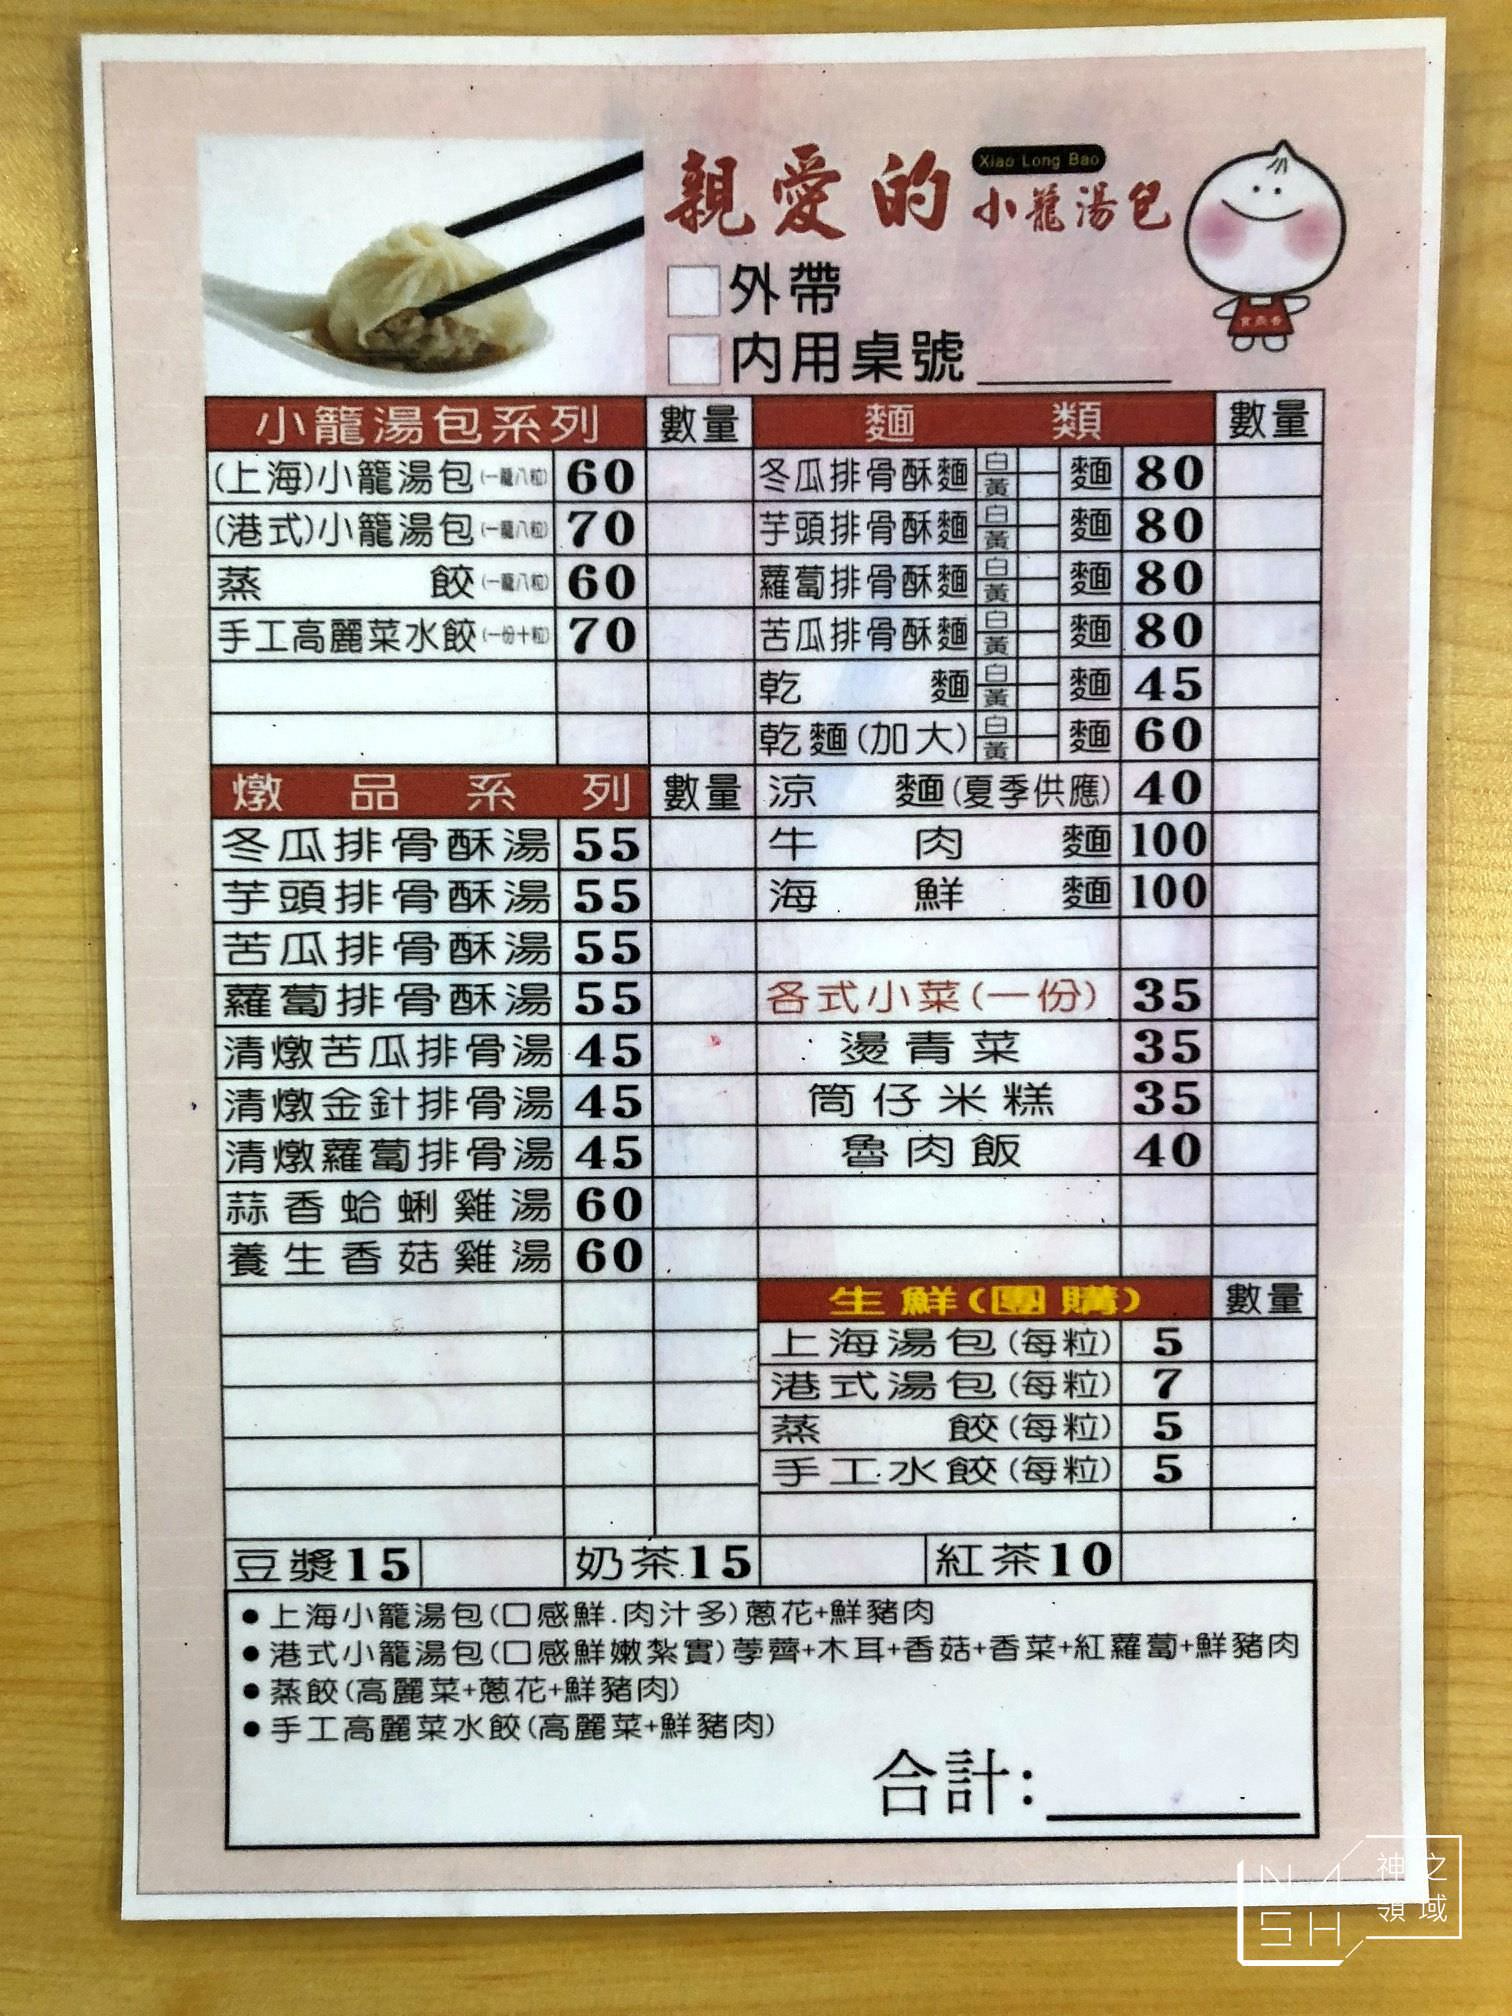 親愛的 Xiao Long Bao 小籠湯包
外帶
內用桌號
小籠湯包系列 數量
(上海)小籠湯包(一籠八粒) 60
(港式)小籠湯包(一籠八粒) 70
蒸餃(一籠八粒) 60
手工高麗菜水餃(一份十粒) 70
燉品系列 數量
冬瓜排骨酥湯 55
芋頭排骨酥湯 55
苦瓜排骨酥湯 55
蘿蔔排骨酥湯 55
清燉苦瓜排骨湯 45
清燉金針排骨湯 45
清燉蘿蔔排骨湯 45
蒜香蛤蜊雞湯 60
養生香菇雞湯 60
麵類 數量
冬瓜排骨酥麵 白 黃 麵 80
芋頭排骨酥麵 白 黃 麵 80
蘿蔔排骨酥麵 白 黃 麵 80
苦瓜排骨酥麵 白 黃 麵 80
乾麵 白 黃 麵 45
乾麵(加大) 白 黃 麵 60
涼麵(夏季供應) 40
牛肉麵 100
海鮮麵 100
各式小菜(一份) 35
燙青菜 35
筒仔米糕 35
魯肉飯 40
生鮮(團購) 數量
上海湯包(每粒) 5
港式湯包(每粒) 7
蒸餃(每粒) 5
手工水餃(每粒) 5
豆漿15 奶茶15 紅茶10
●上海小籠湯包(口感鮮.肉汁多)蔥花+鮮豬肉
●港式小籠湯包(口感鮮嫩紮實)荸薺+木耳+香菇+香菜+紅蘿蔔+鮮豬肉
●蒸餃(高麗菜+蔥花+鮮豬肉)
●手工高麗菜水餃(高麗菜+鮮豬肉)
合計:
NASH 神之領域